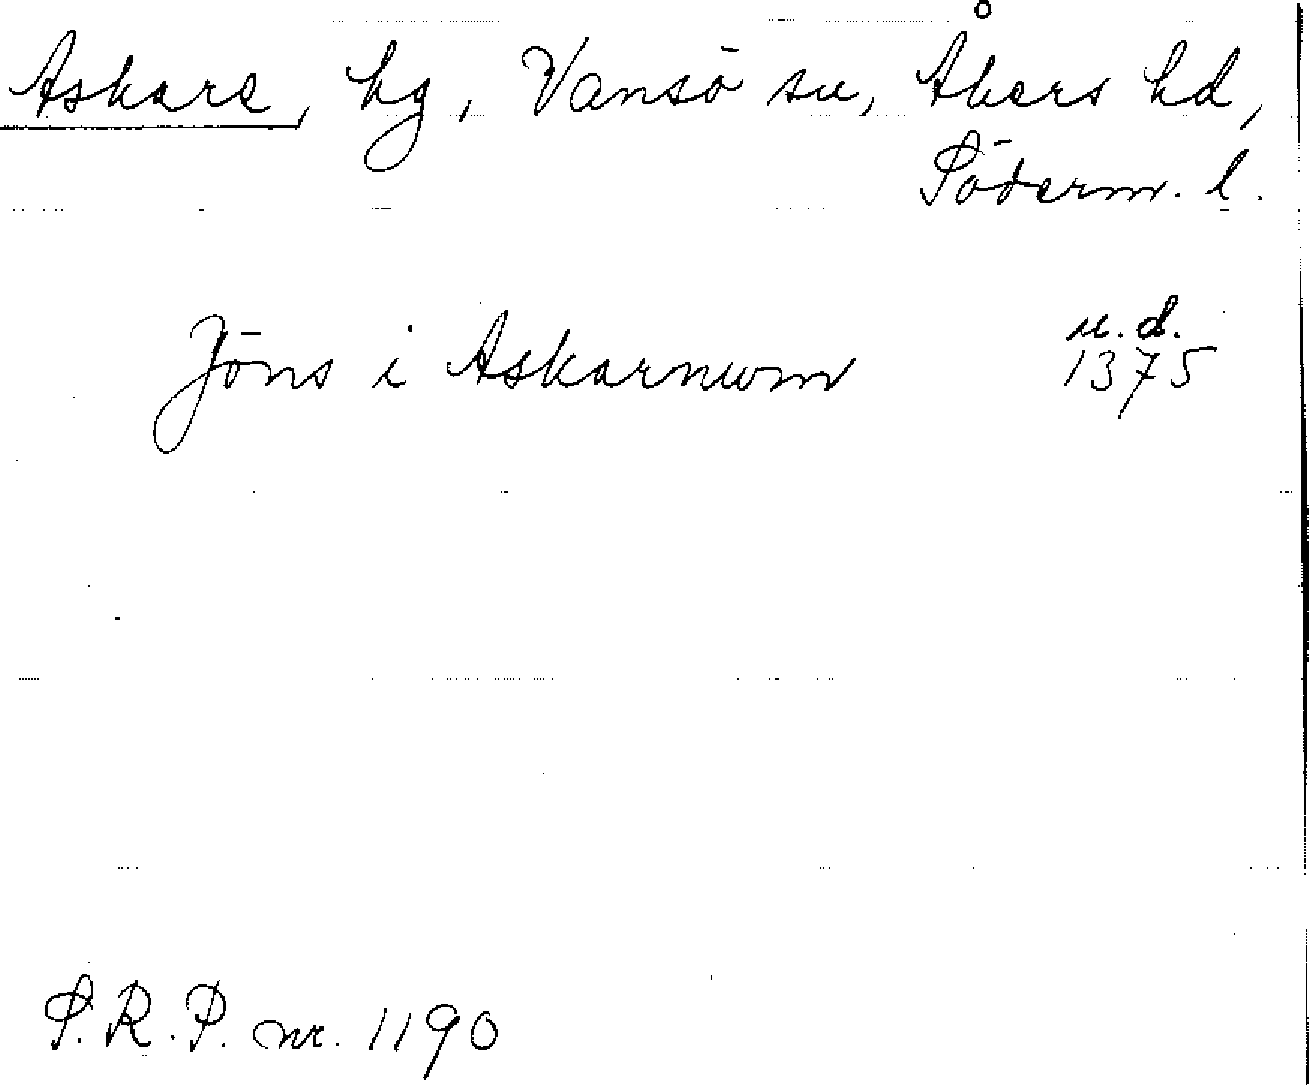 Askare, hg, Vansö sn, Åkers hd,
Söderm. l.
u.d.
Jöns i Askarnum 1375
S.R.P. nr. 1190